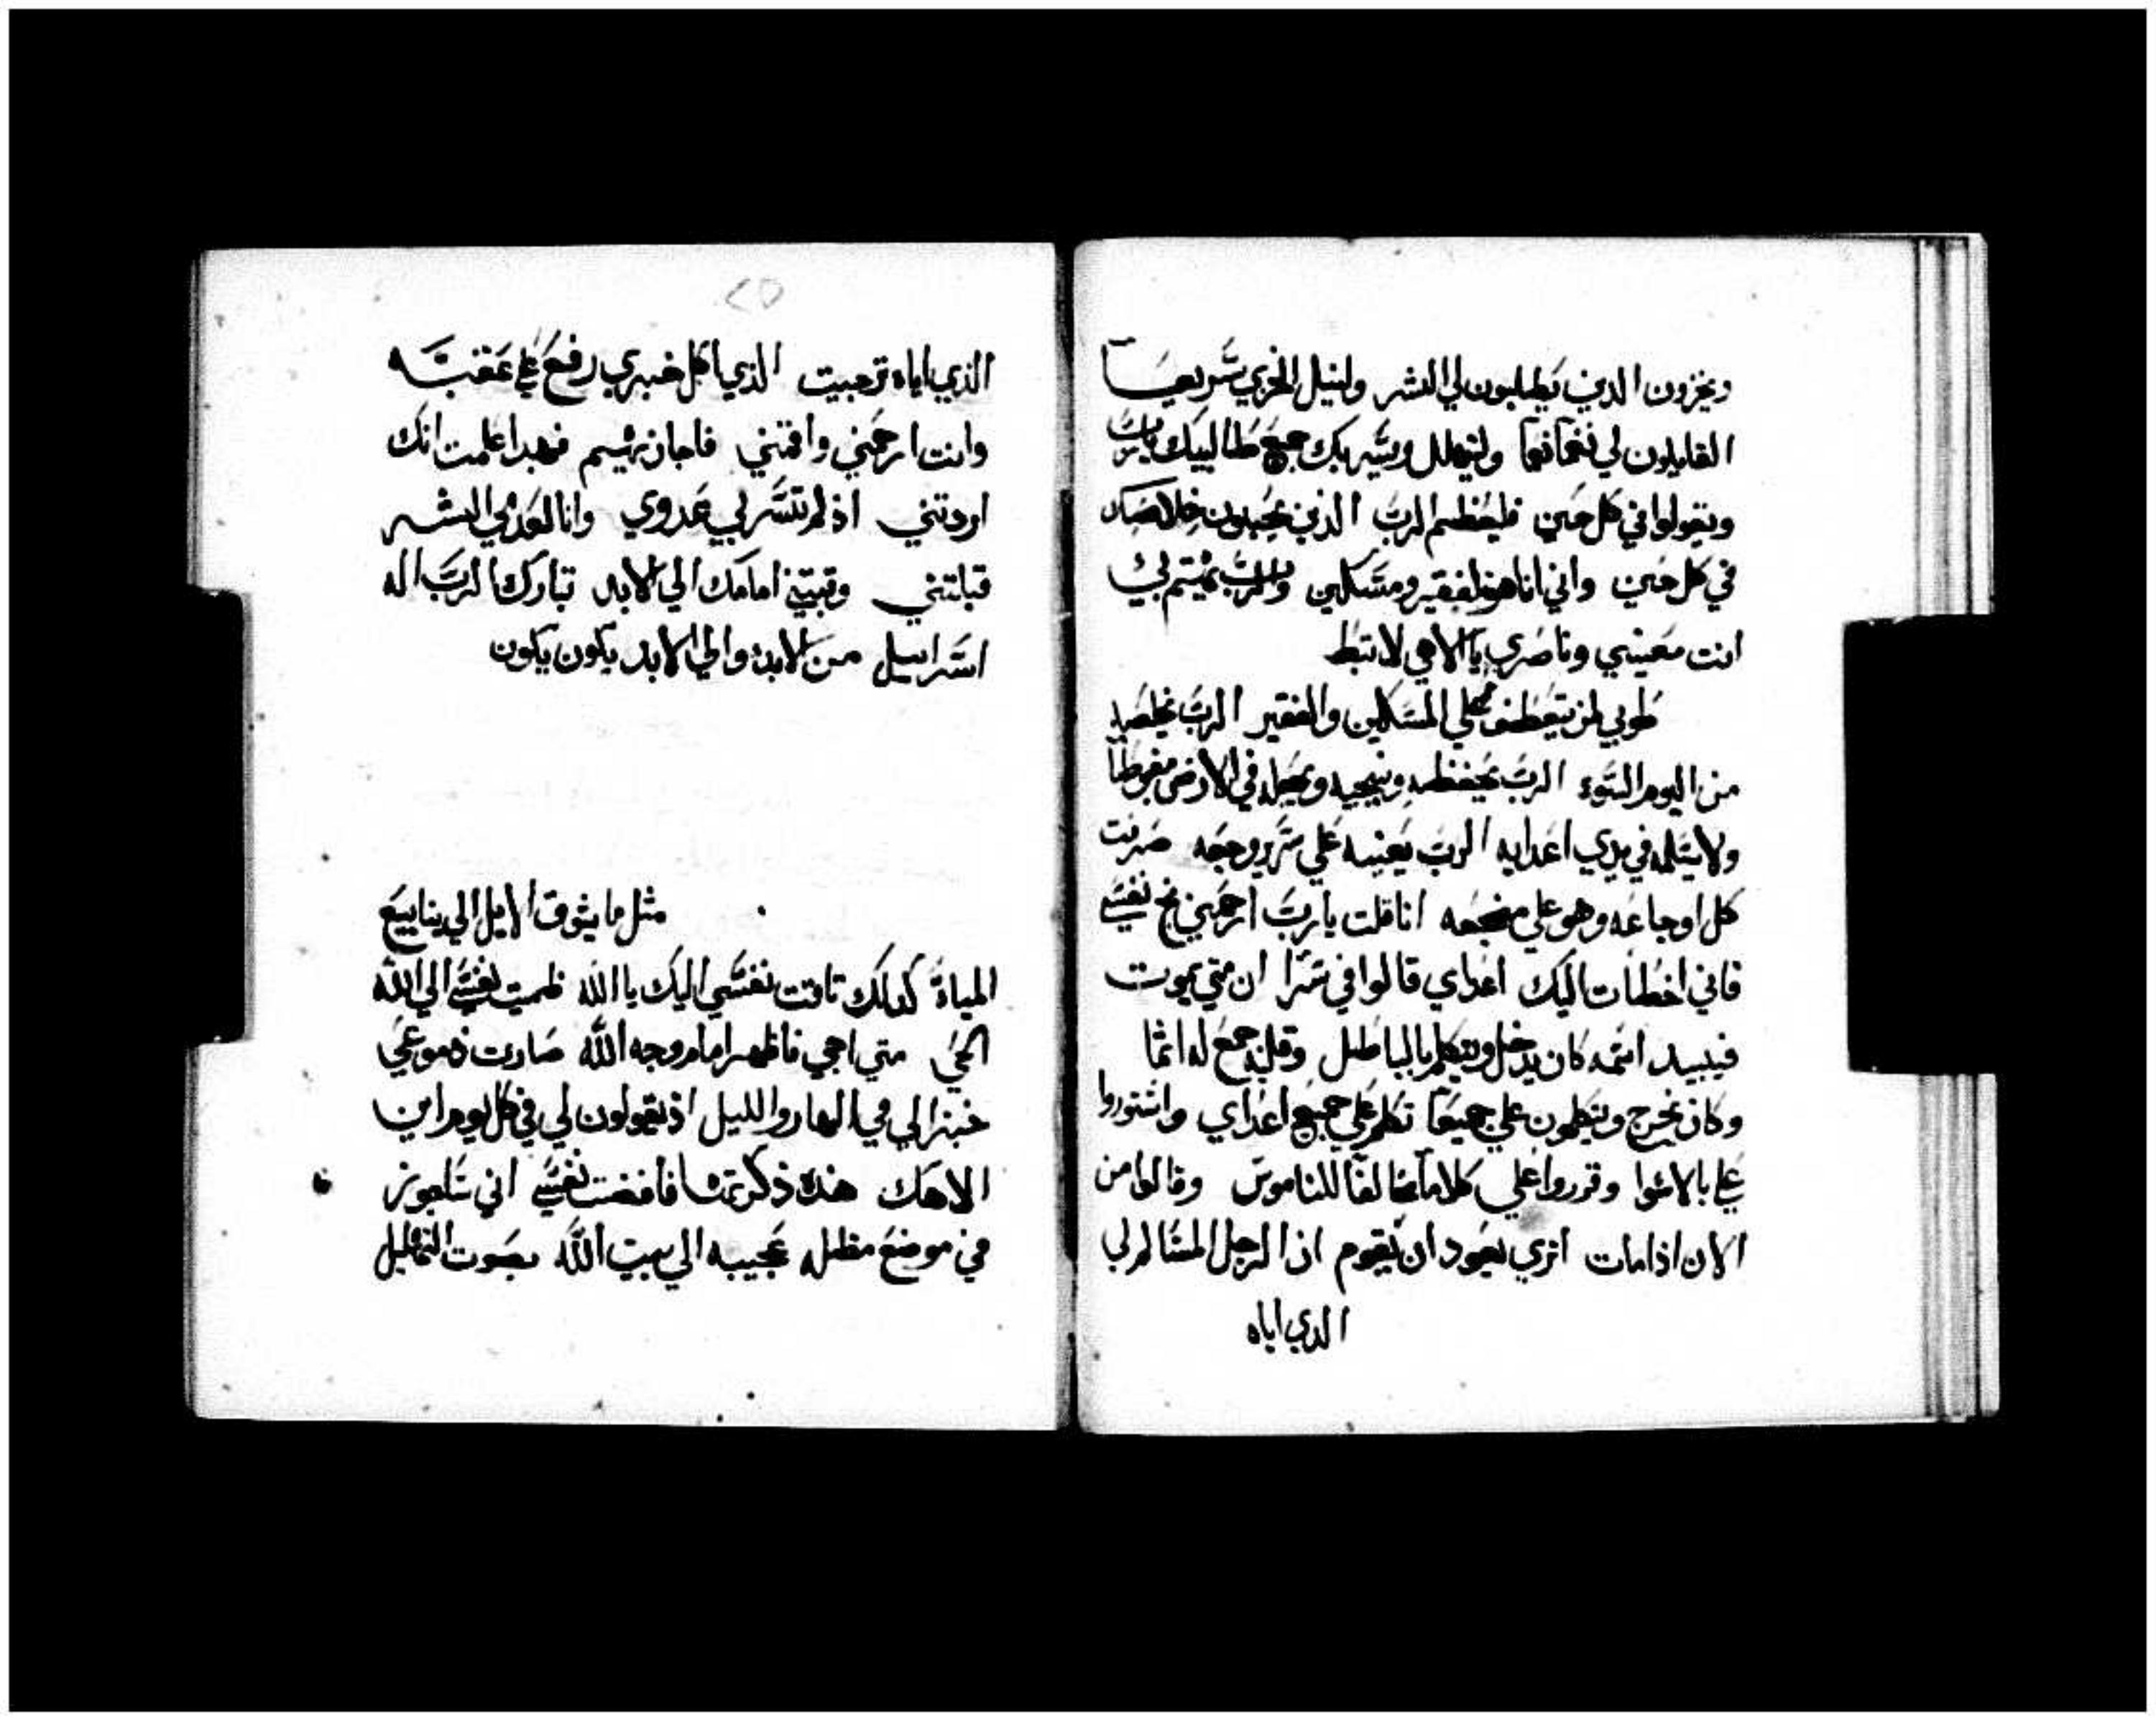 ويخزون الذين يطلبون لي الشر ولينيل الخزي سريعا
القايلون لي نعما نعما وليتهلل ويسر بك جميع طالبيك يارب
ويقولوا في كل حين فليعظم الرب الذين يحبون خلاصك
في كل حين واني انا هو لفقير ومسكين والرب يهتم بي
انت معيني وناصري يا الاهي لا تبط
طوبي لمن يتعطف علي المسكين والفقير الرب يخلصه
من اليوم السوء الرب يحفظه وينجيه ويجعله في الارض مغبوطا
ولا يسلمه في يدي اعدايه الرب يعينه علي سرير وجعه صرفت
كل اوجاعه وهو علي مضجعه انا قلت يارب ارحمني نج نفسي
فاني اخطات اليك اعداي قالوا في شرا ان متي يموت
فيبيد اسمه كان يدخل ويتكلم بالباطل وقلبه جمع له اثما
وكان يخرج ويتكلمون علي جميعا تكلم علي جميع اعداي واشتوروا
علي بالاسوا وقرروا علي كلاما مخالفا للناموس وقالوا من
الان اذا مات اتري يعود ان يقوم اذ الرجل المسالم لي
الذي اياه
٢٥
الذي اياه ترجيت الذي اكل خبزي رفع علي عقبه
وانت ارحمني واقمني فاجازيهم فبهدا علمت انك
اردتني اذ لم تسر بي عدوي وانا لعدمي الشر
قبلتني وتبتني امامك الي الابد تبارك الرب اله
اسراييل من الابد والي الابد يكون يكون
مثل ما يشوق الايل الي ينابيع
المياة كدلك تاقت نفسي اليك يا الله ظميت نفسي الي الله
الحي متي اجي فاظهر امام وجه الله صارت دموعي
خبزا لي في النهار والليل اذ يقولون لي في كل يوم اين
الاهك هذه ذكرتها فافضت نفسي اني ساجوز
في موضع مظله عجيبه الي بيت الله بصوت التهليل